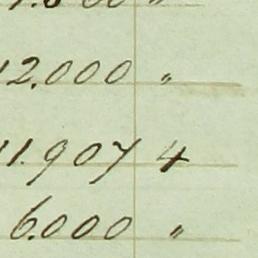 12.000 "
11.907 4
6.000 "